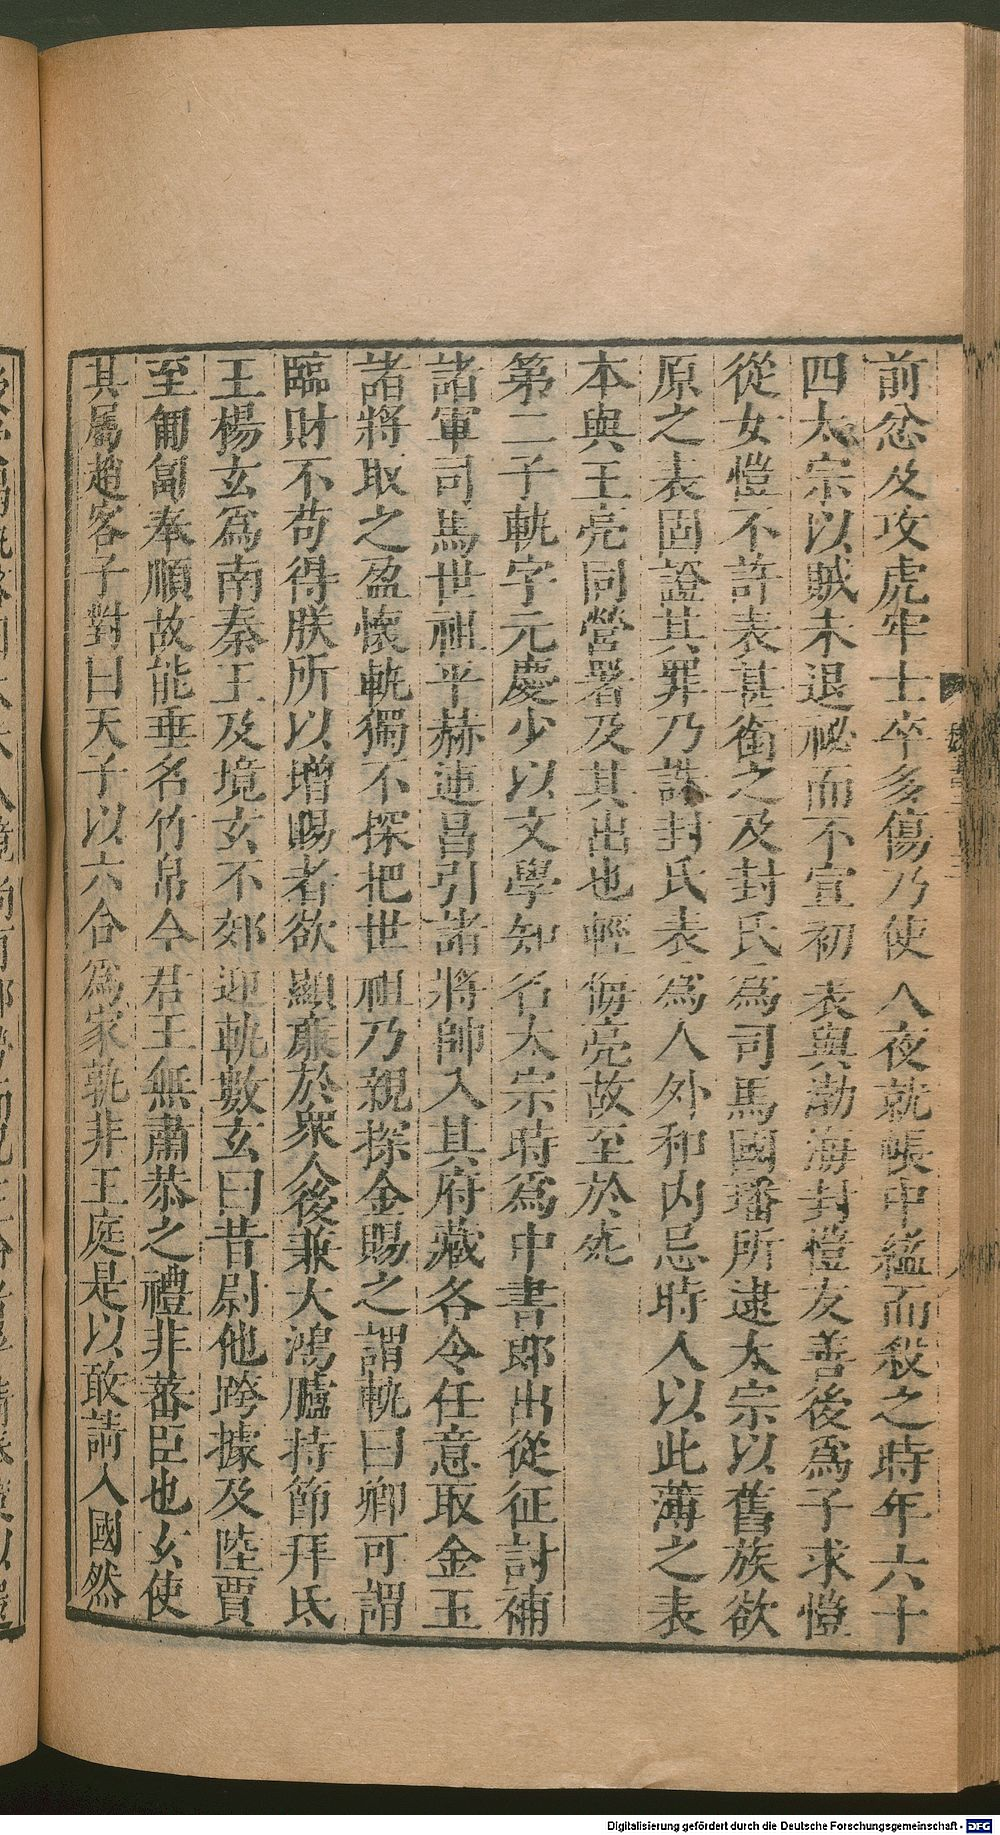 前忿及攻虎牢士卒多傷乃使人夜就帳中縊而殺之時年六十
四太宗以賊未退祕而不宣初表與渤海封愷友善後爲子求愷
從女愷不許表甚銜之及封氏爲司馬國璠所逮太宗以舊族欲
原之表固證其罪乃誅封氏表爲人外和内忌時人以此薄之表
本與王亮同營署及其出也輕侮亮故至於死
第二子軌字元慶少以文學知名太宗時爲中書郎出從征討補
諸軍司馬世祖平赫連昌引諸將帥入其府藏各令任意取金玉
諸將取之盈懷軌獨不探把世祖乃親探金賜之謂軌曰卿可謂
臨財不苟得朕所以增賜者欲顯廉於衆人後兼大鴻臚持節拜氐
王楊玄爲南秦王及境玄不郊迎軌數玄曰昔尉他跨據及陸賈
至匍匐奉順故能垂名竹帛今君王無肅恭之禮非蕃臣也玄使
其屬趙客子對曰天子以六合爲家孰非王庭是以敢請入國然
Digitalisierung gefördert durch die Deutsche Forschungsgemeinschaft - DFG